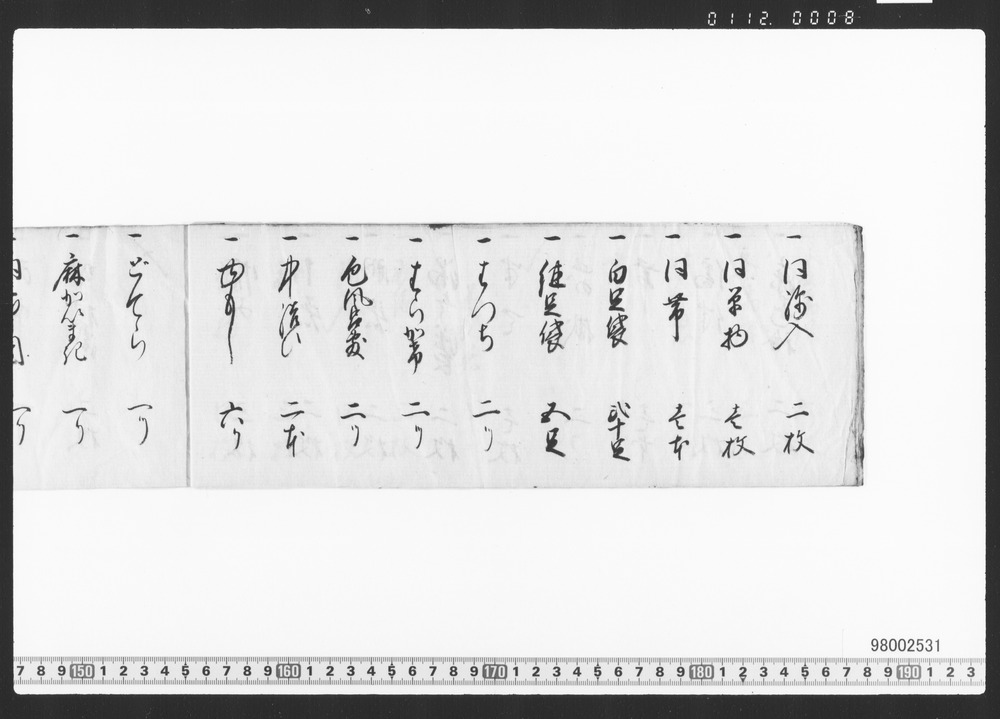 0112. 0008
一 同綿入 二枚
一 同單物 壱枚
一 同帯 壱本
一 白足袋 弐十足
一 継足袋 五足
一 もつち 二ツ
一 もらか帯 二ツ
一 色風呂敷 二ツ
一 二本
一 六ツ
一 どてら 一ツ
一 麻かいまき 一ツ
98002531
7 8 9 150 1 2 3 4 5 6 7 8 9 160 1 2 3 4 5 6 7 8 9 170 1 2 3 4 5 6 7 8 9 180 1 2 3 4 5 6 7 8 9 190 1 2 3